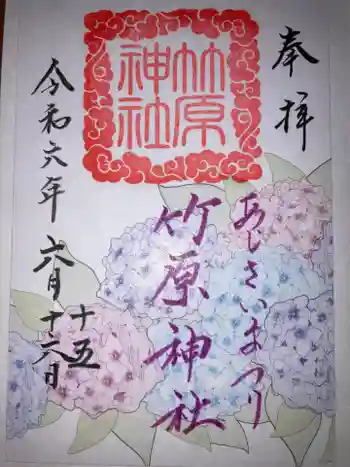 奉拝
あじさいまつり
竹原神社
竹原
神社
令和六年
六月十五
十六日